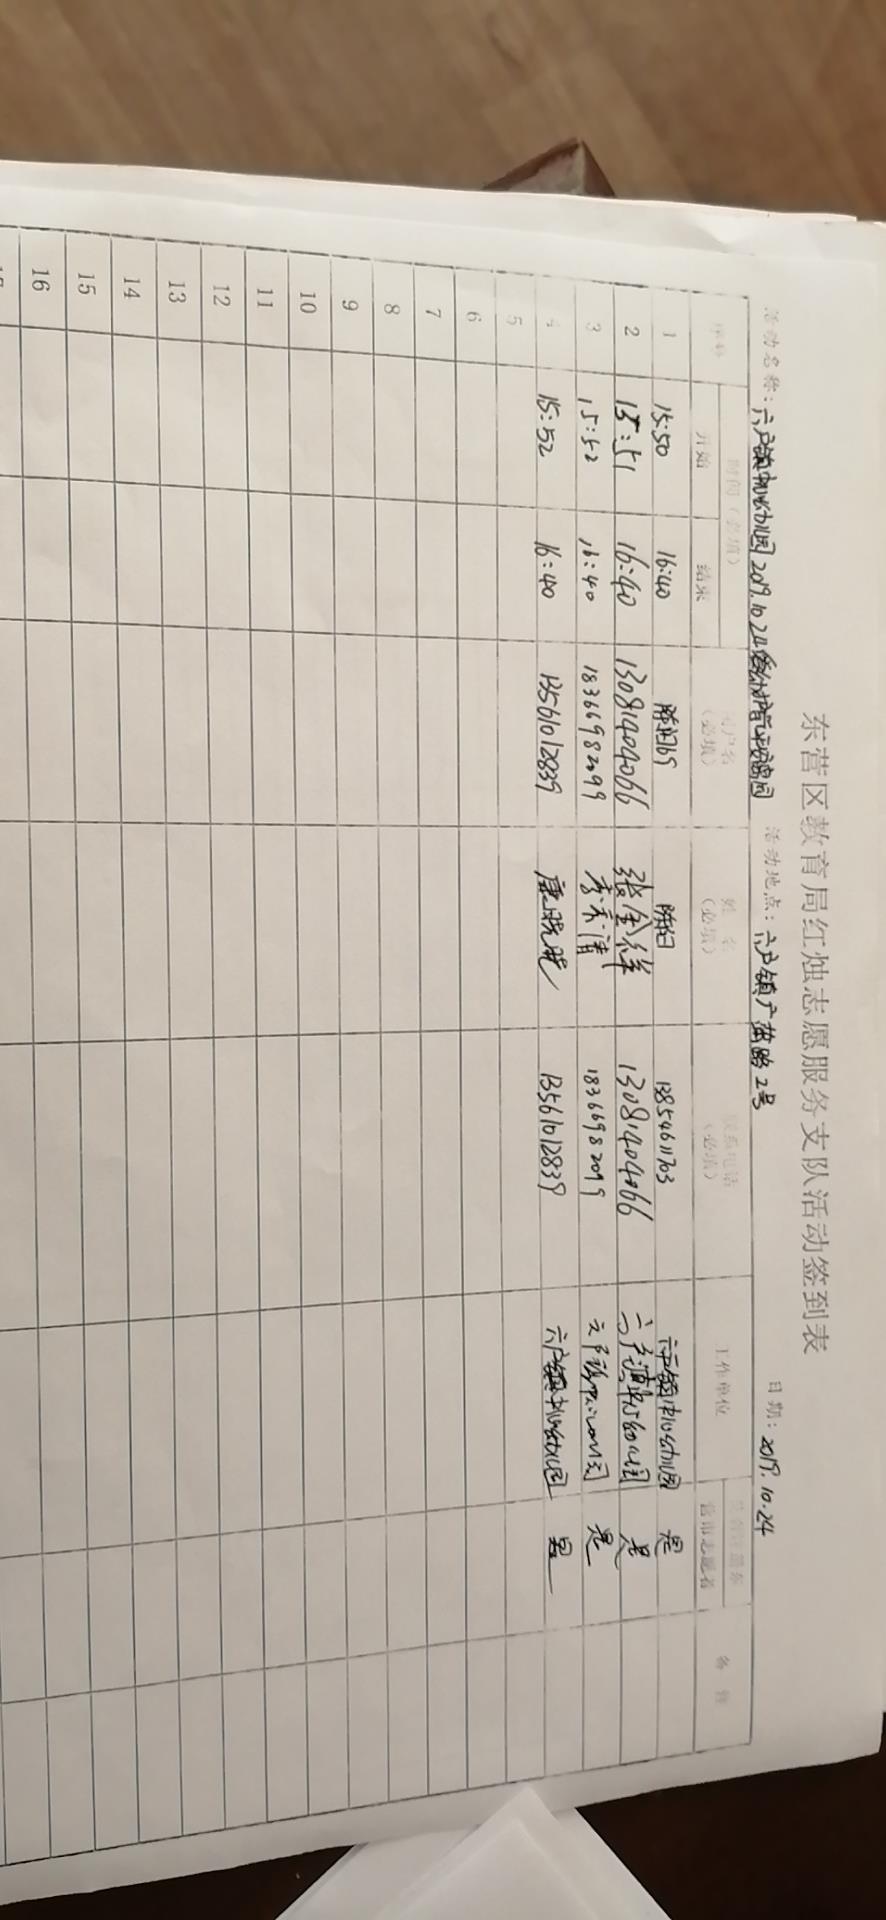 东营区教育局红烛志愿服务支队活动签到表
活动名称：六户镇中心幼儿园2019.10.24 活动地点：六户镇广盐路2号 日期：2019.10.24
序号 时间（必填） 用户名（必填） 姓名（必填） 联系电话（必填） 工作单位 营市志愿者 备注
开始 结束
1 15:50 16:40 13854611703 六户镇中心幼儿园 是
2 15:51 16:40 13081404066 张全祥 13081404066 六户镇中心幼儿园 是
3 15:52 16:40 18366982099 李秀清 18366982099 六户镇中心幼儿园 是
4 15:52 16:40 13561012839 康晓晓 13561012839 六户镇中心幼儿园 是
5
6
7
8
9
10
11
12
13
14
15
16